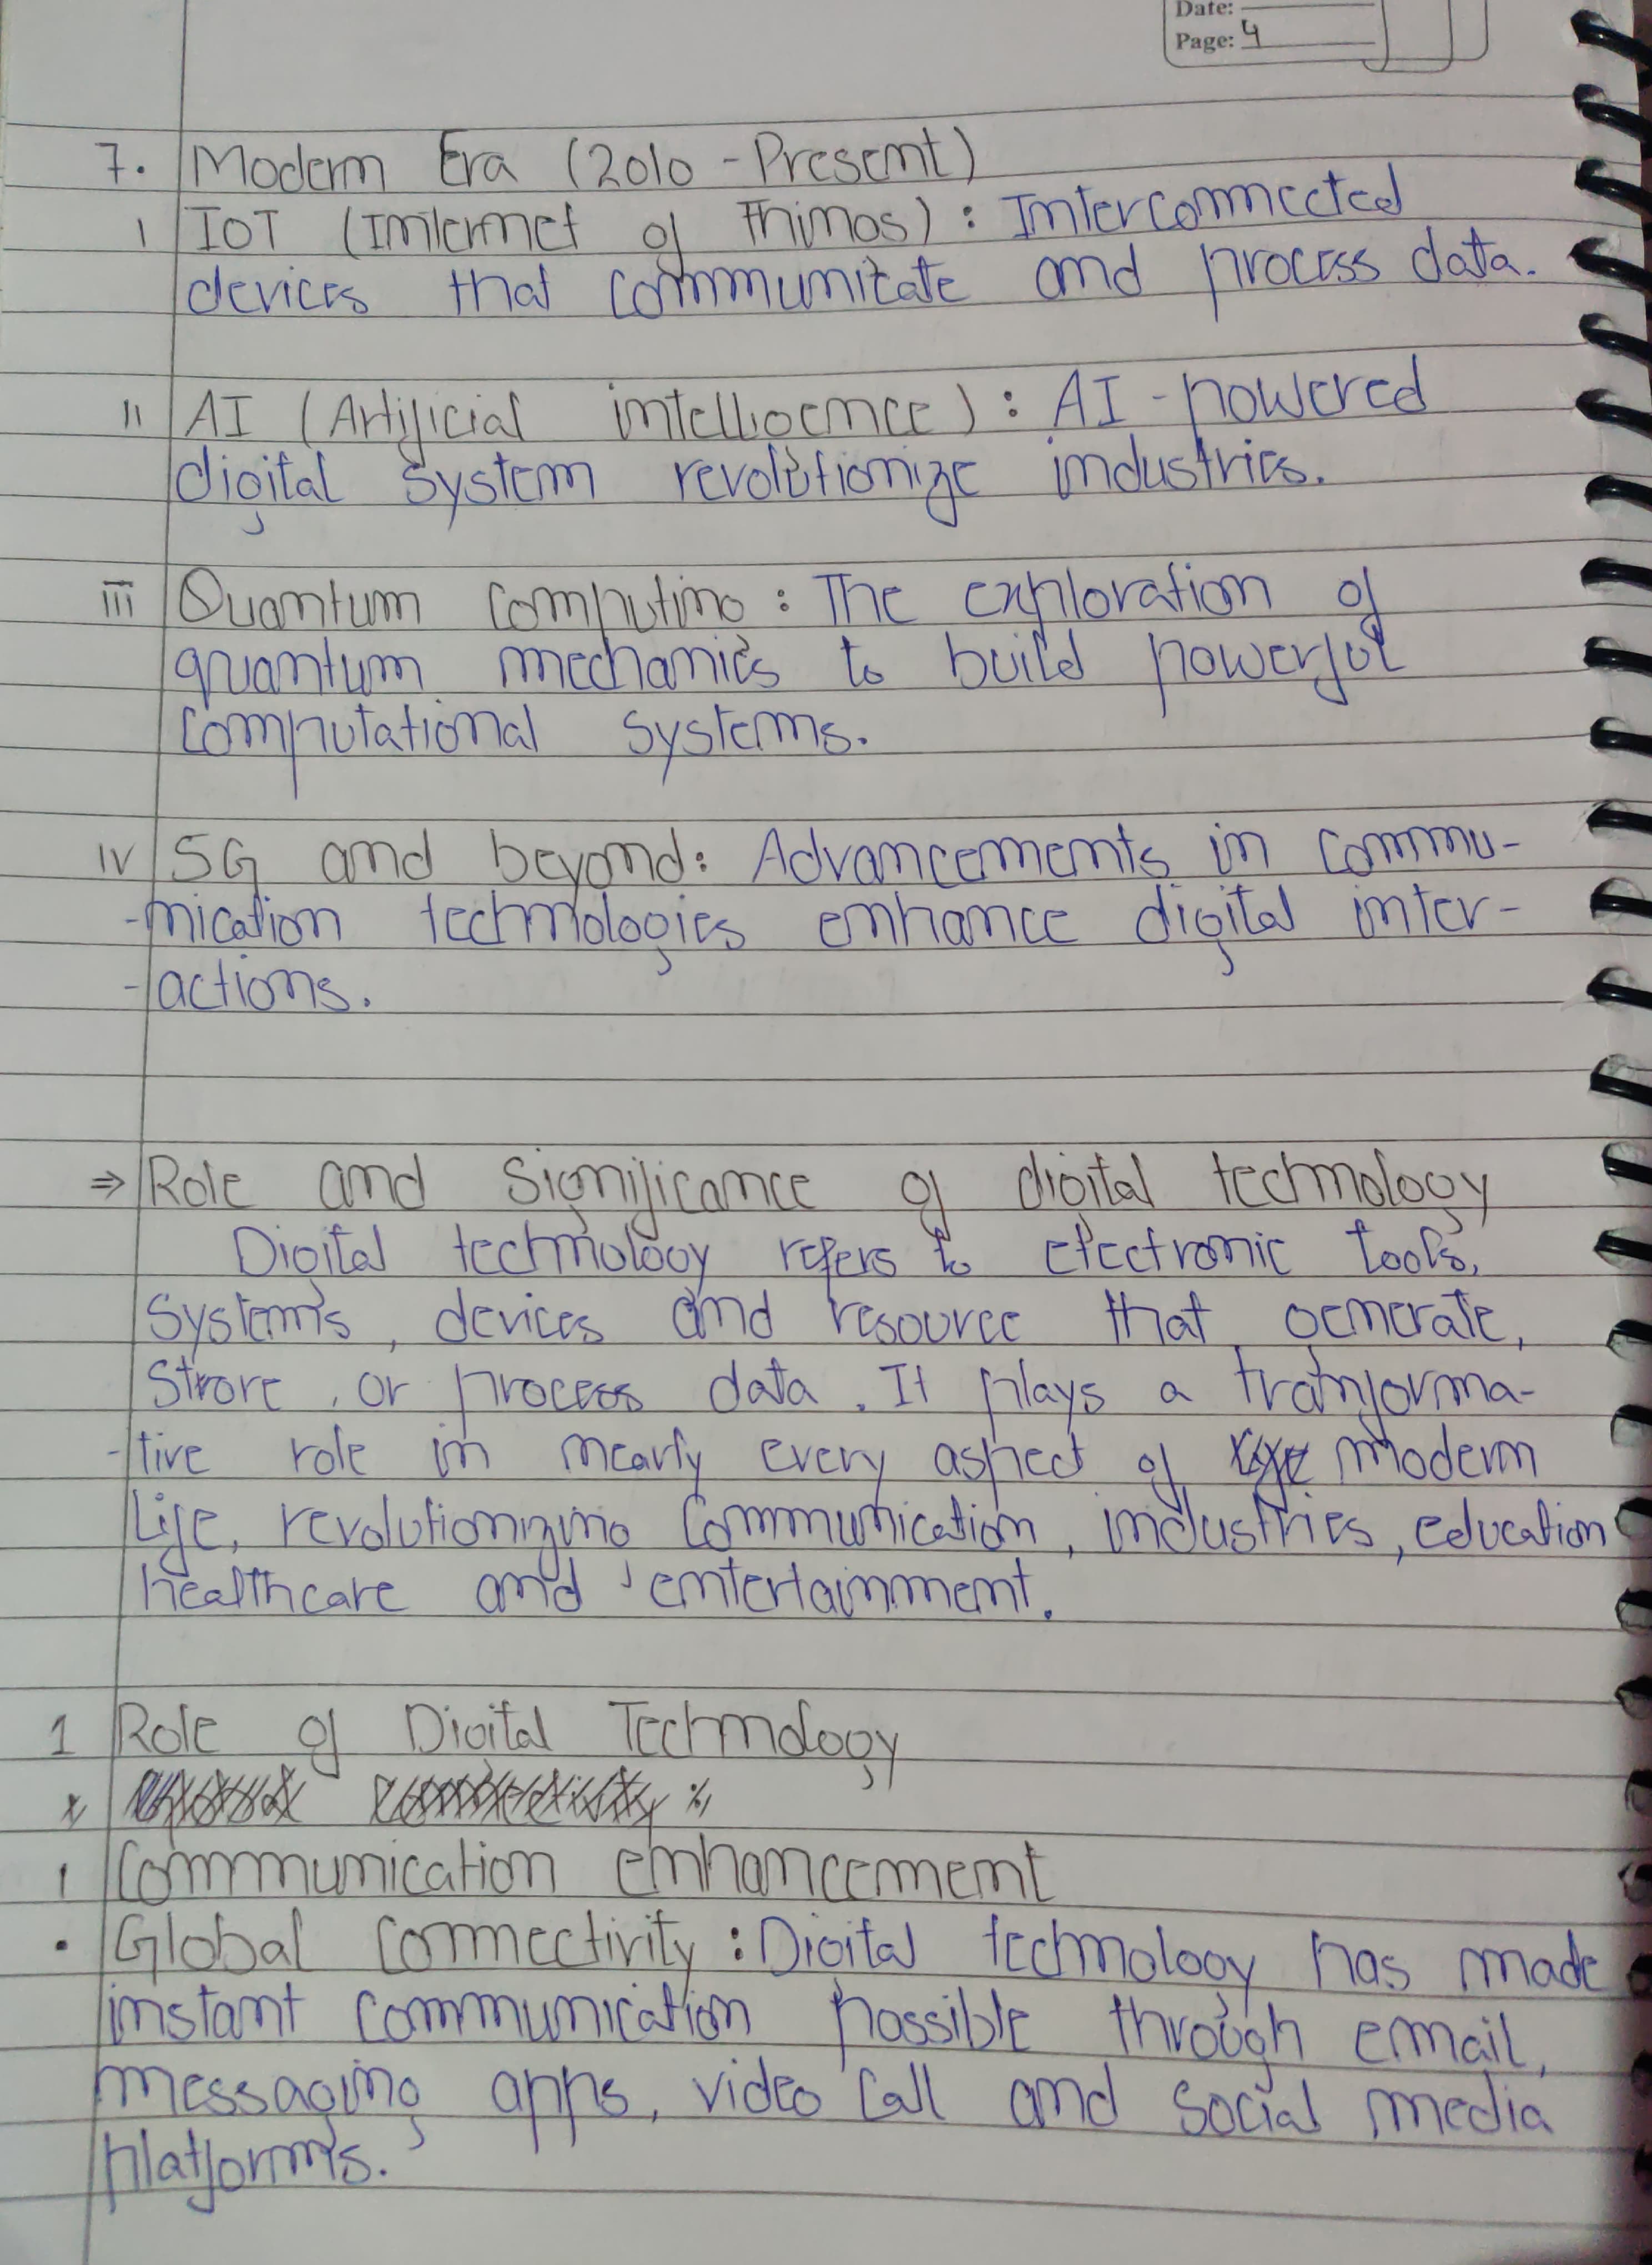 Date:
Page: 4
7. Modern Era (2010 - Present)
i IOT (Internet of Things) : Interconnected
devices that communicate and process data.
ii AI (Artificial intelligence) : AI - powered
digital system revolutionize industries.
iii Quantum Computing : The exploration of
quantum mechanics to build powerful
computational systems.
iv 5G and beyond: Advancements in commu-
-nication technologies enhance digital inter-
-actions.
⇒ Role and Significance of digital technology
Digital technology refers to electronic tools,
systems, devices and resource that generate,
store, or process data. It plays a tranforma-
-tive role in nearly every aspect of modern
life, revolutionizing communication, industries, education
healthcare and entertainment.
1 Role of Digital Technology
i Communication enhancement
• Global connectivity : Digital technology has made
instant communication possible through email,
messaging apps, video call and social media
platforms.